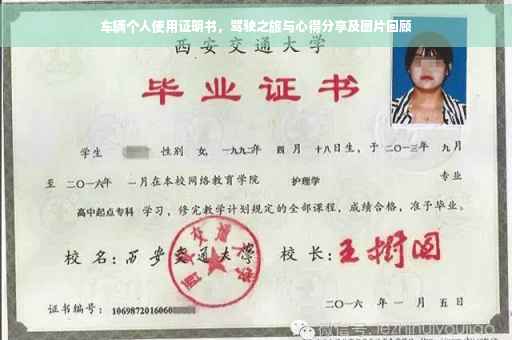 车辆个人使用证明书，驾驶之旅与心得分享及图片回顾
西安交通大学
毕业证书
学生 性别 女, 一九九二年 四 月 十八日生, 于 二〇一三年 九月
至 二〇一六年 一月在本校网络教育学院 护理学 专业
高中起点专科 学习, 修完教学计划规定的全部课程, 成绩合格, 准予毕业。
校 名: 西安交通大学 校 长: 王树国
证书编号: 1069872016060
二〇一六 年 一 月 五 日
微信号: jezhinuiyoujiao